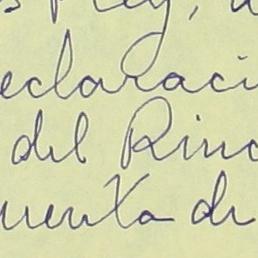 eclaraci
del Rinc
uenta de